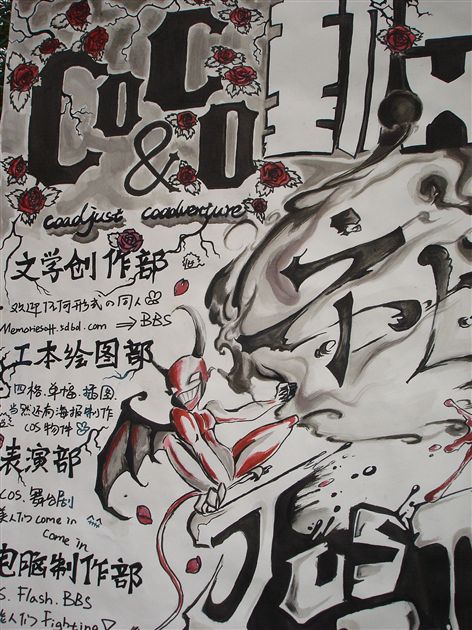 CoC
&O
coadjust coadventure
文学创作部
欢迎任何形式の同人
Memoriesoft.sdbd.com ⇒ BBS
工本绘图部
四格.单幅.插图
当然还有海报制作
COS物件
表演部
COS. 舞台剧
美人们 come in
come in
电脑制作部
S. Flash. BBS
人们 Fighting
JUST